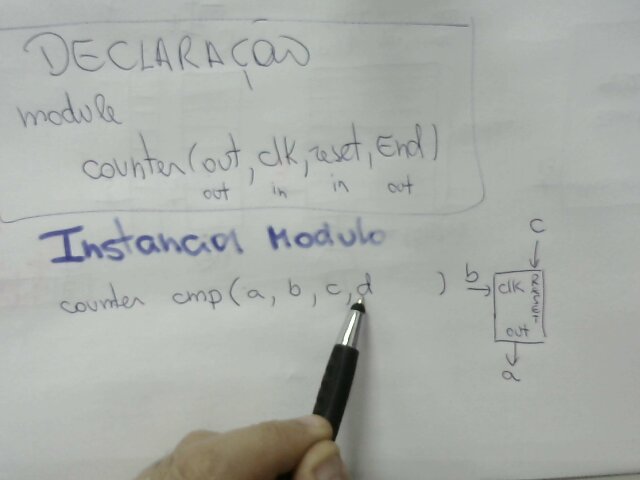 DECLARAÇÃO
module
counter(out, clk, reset, End)
out in in out
Instancial Modulo
counter cmp(a, b, c, d )
c
b
clk
RESET
out
a